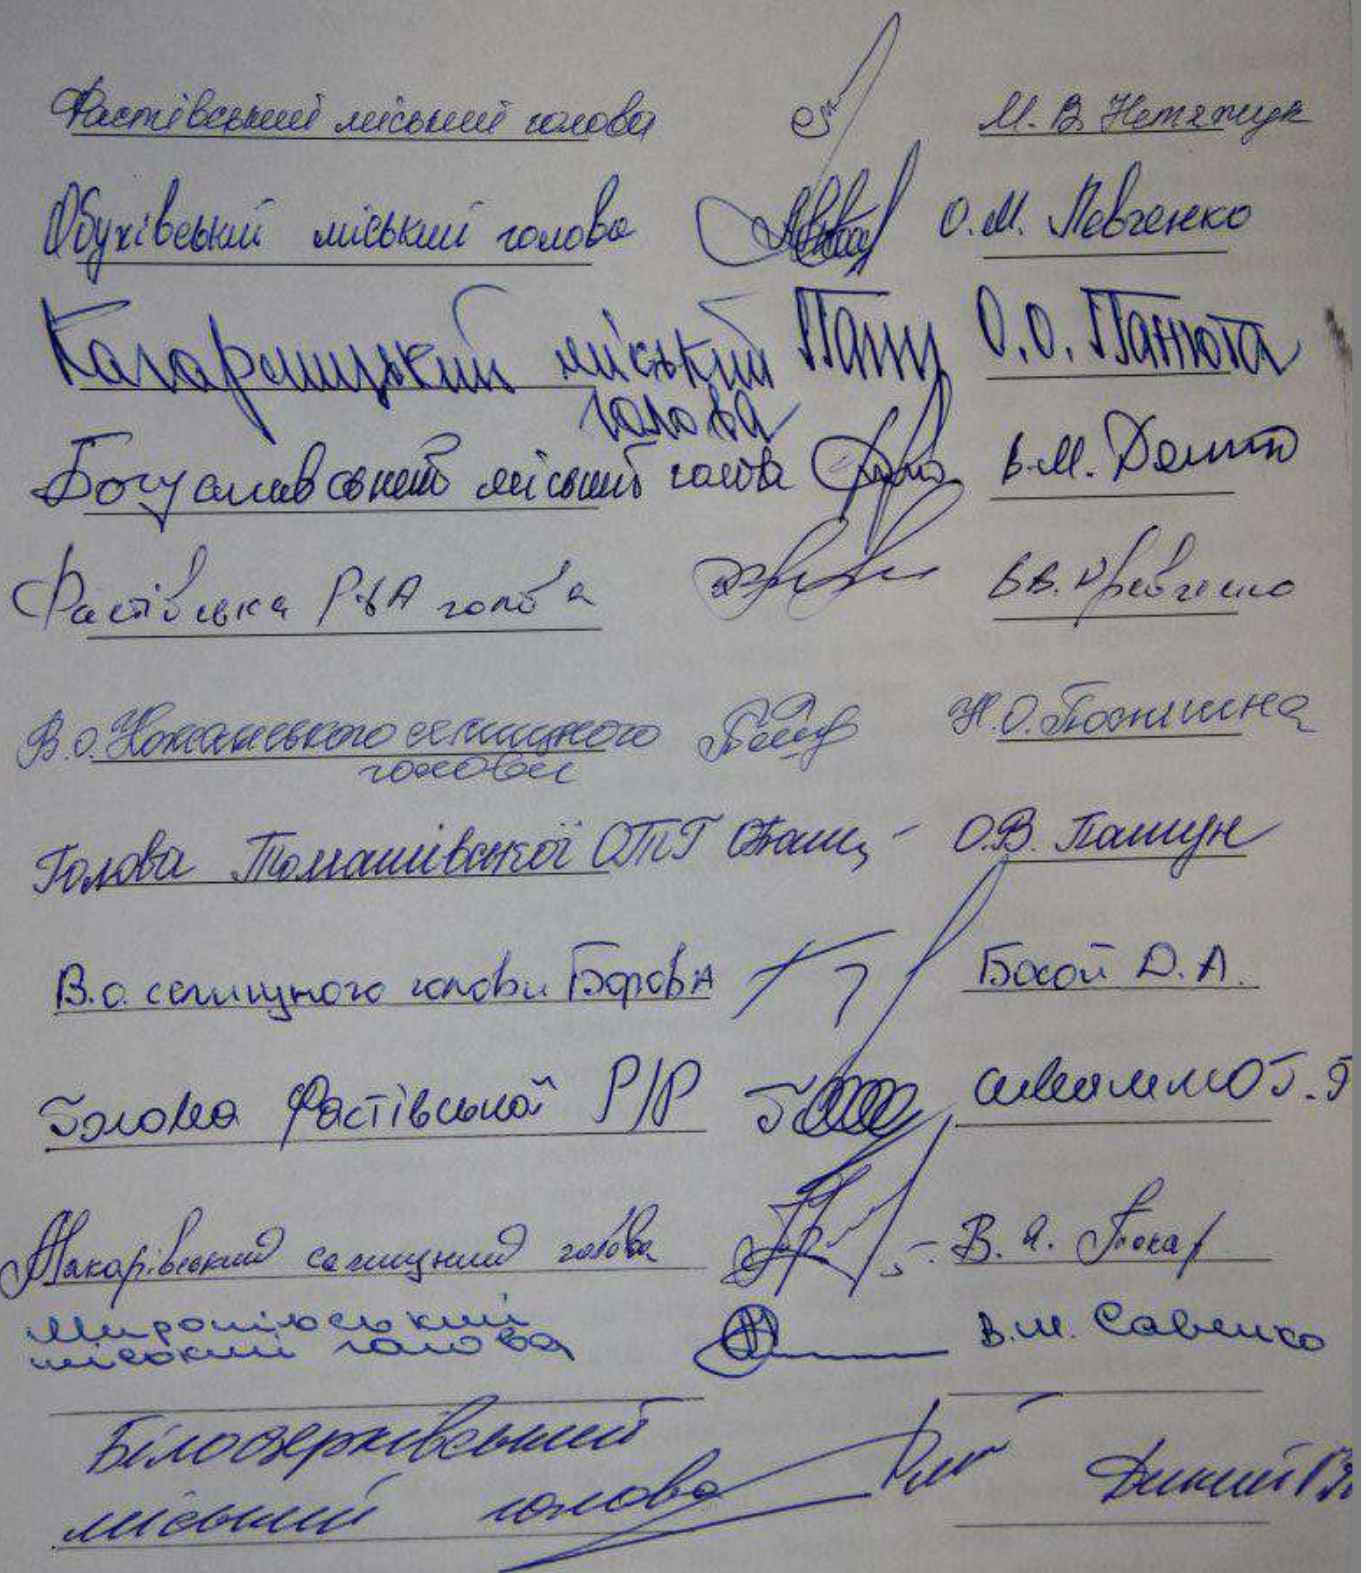 Фастівський міський голова М.В. Нетяжук
Обухівський міський голова О.М. Левченко
Кагарлицький міський О.О. Панюта
голова
Богуславський міський голова В.М.
Фастівська РДА голова В.В.
В.о. Кожанського селищного Н.О.
голови
Голова Томашівської ОТГ О.В. Пашун
В.о. селищного голови Борова Босой Д.А.
Голова Фастівської Р/Р
Макарівський селищний голова В.Я. Токар
Миронівський В.М. Савенко
міський голова
Білоцерківський
міський голова Дикий